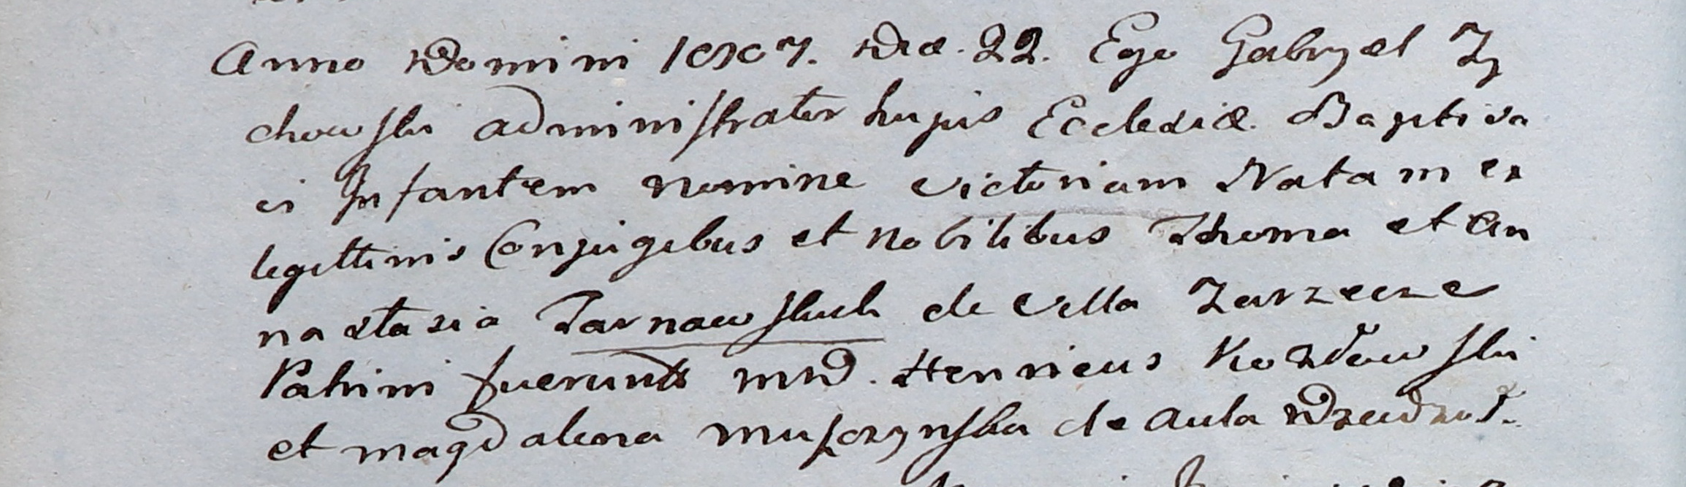 Anno Domini 1807. Diæ. 22. Ego Gabryel Zy
chowski administrator hujus Ecclesiæ. Baptisa
vi Infantem nomine Victoriam Natam ex
legittimis Conjugibus et nobilibus Thoma et An
nastasia Tarnawskich de Villa Zarzecze
Patrini fuerunt MD. Henricus Kozłowski
et magdalena muszynska de aula